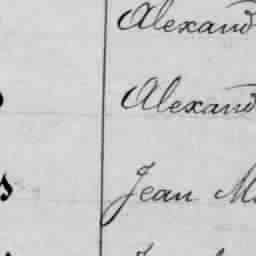 Alexand
Alexand
s Jean M